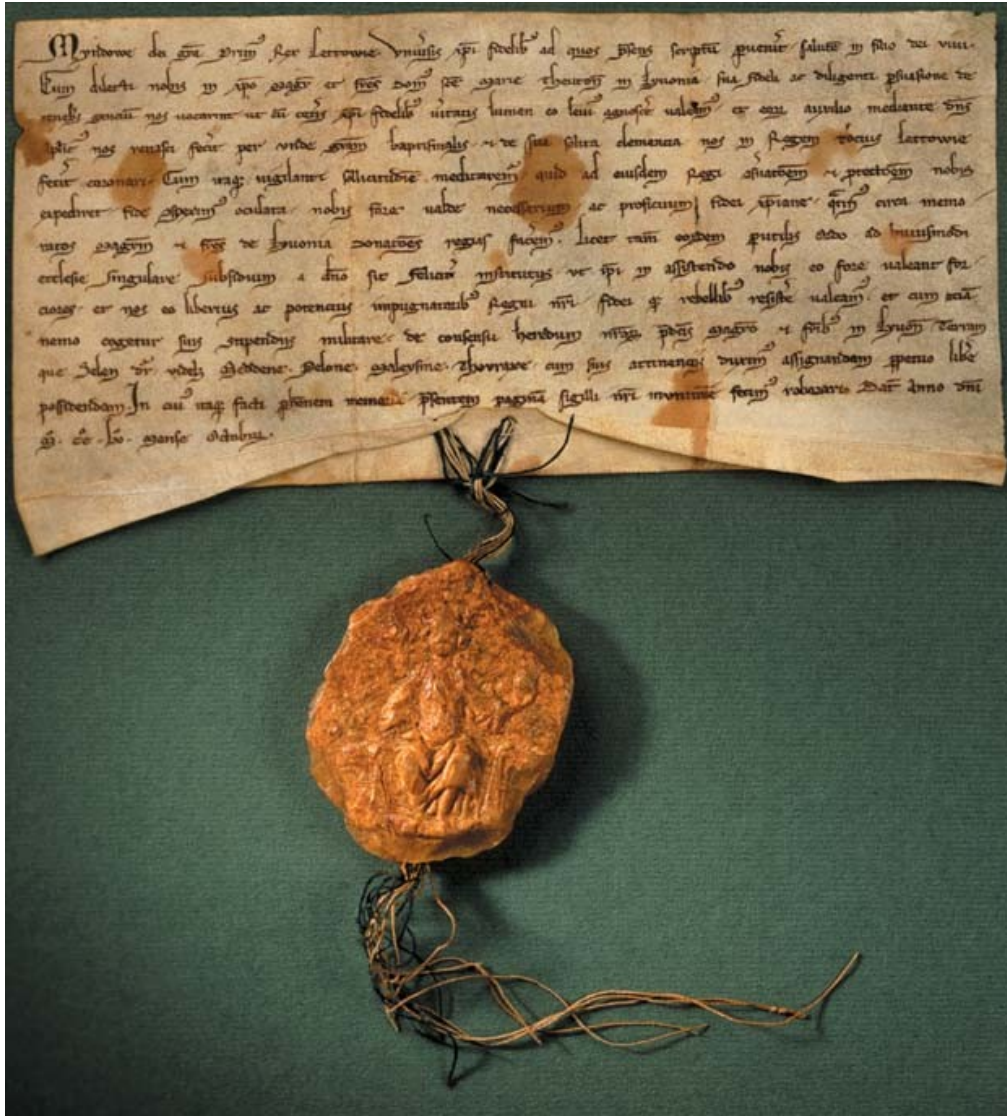 Myndowe dei grā Primꝰ Rex Lettowie Vniūsis xp̄i fidelibꝰ ad quos p̄sens scriptū puen̄it salutē in filio dei viui.
Cum dilecti nobis in xp̄o Magr̄ et fr̄es Domꝰ sc̄e Marie theuton̄ in Lyuonia sua fideli ac diligenti psuasione de
nos uocarint ut cū cet̄is xp̄i fidelibꝰ ūitatis lumen eo leuiꝰ agnosc̄e valeamꝰ et eoꝝ auxilio mediante dn̄s
nos renasci fec̄it per vnde grām baptismalis ⁊ de sua solita clemencia nos in Regem tocius Lettowie
fec̄it coronari. Cum itaqꝫ vigilanti sollicitudīe meditarem̄ quid ad eiusdem Regī ⁊ nobis
expediret fide oculata nobis fore valde necessarium ac proficuum fidei xp̄iane circa memo
ratos Magr̄m ⁊ fr̄es de Lyuonia Donacōes regias facem̄. Licet tam̄ eosdem p̄utibus modo ad huiusmodi
ecclesie singulare subsidium a dn̄o sit felicit̄ institutus ut ip̄i in assistendo nobis eo fore valeant for
ciores. et nos eo liberius ac potencius impugnatoribꝰ Regni nr̄i fidei qꝫ rebellibꝰ resiste valeamꝰ. et cum eciā
nemo cogetur suis stipendiis militare. de consensu heredum nr̄oꝝ p̄dc̄is Magr̄o ⁊ fr̄ibꝰ in Lyuon̄ Terram
que Selen dr̄ videlꝫ Meddene. Pelone. Maleysine. Thovraxe. cum suis attinenciis duximꝰ assignandam ppetuo libe
possidendam. In cuiꝰ itaqꝫ facti p̄hennem memoriā p̄sentem paginā sigilli nr̄i munimine fecimꝰ roborari. Dat̄ Anno dn̄i
M̄. c̄c̄. lv̄. Mense Octobris.